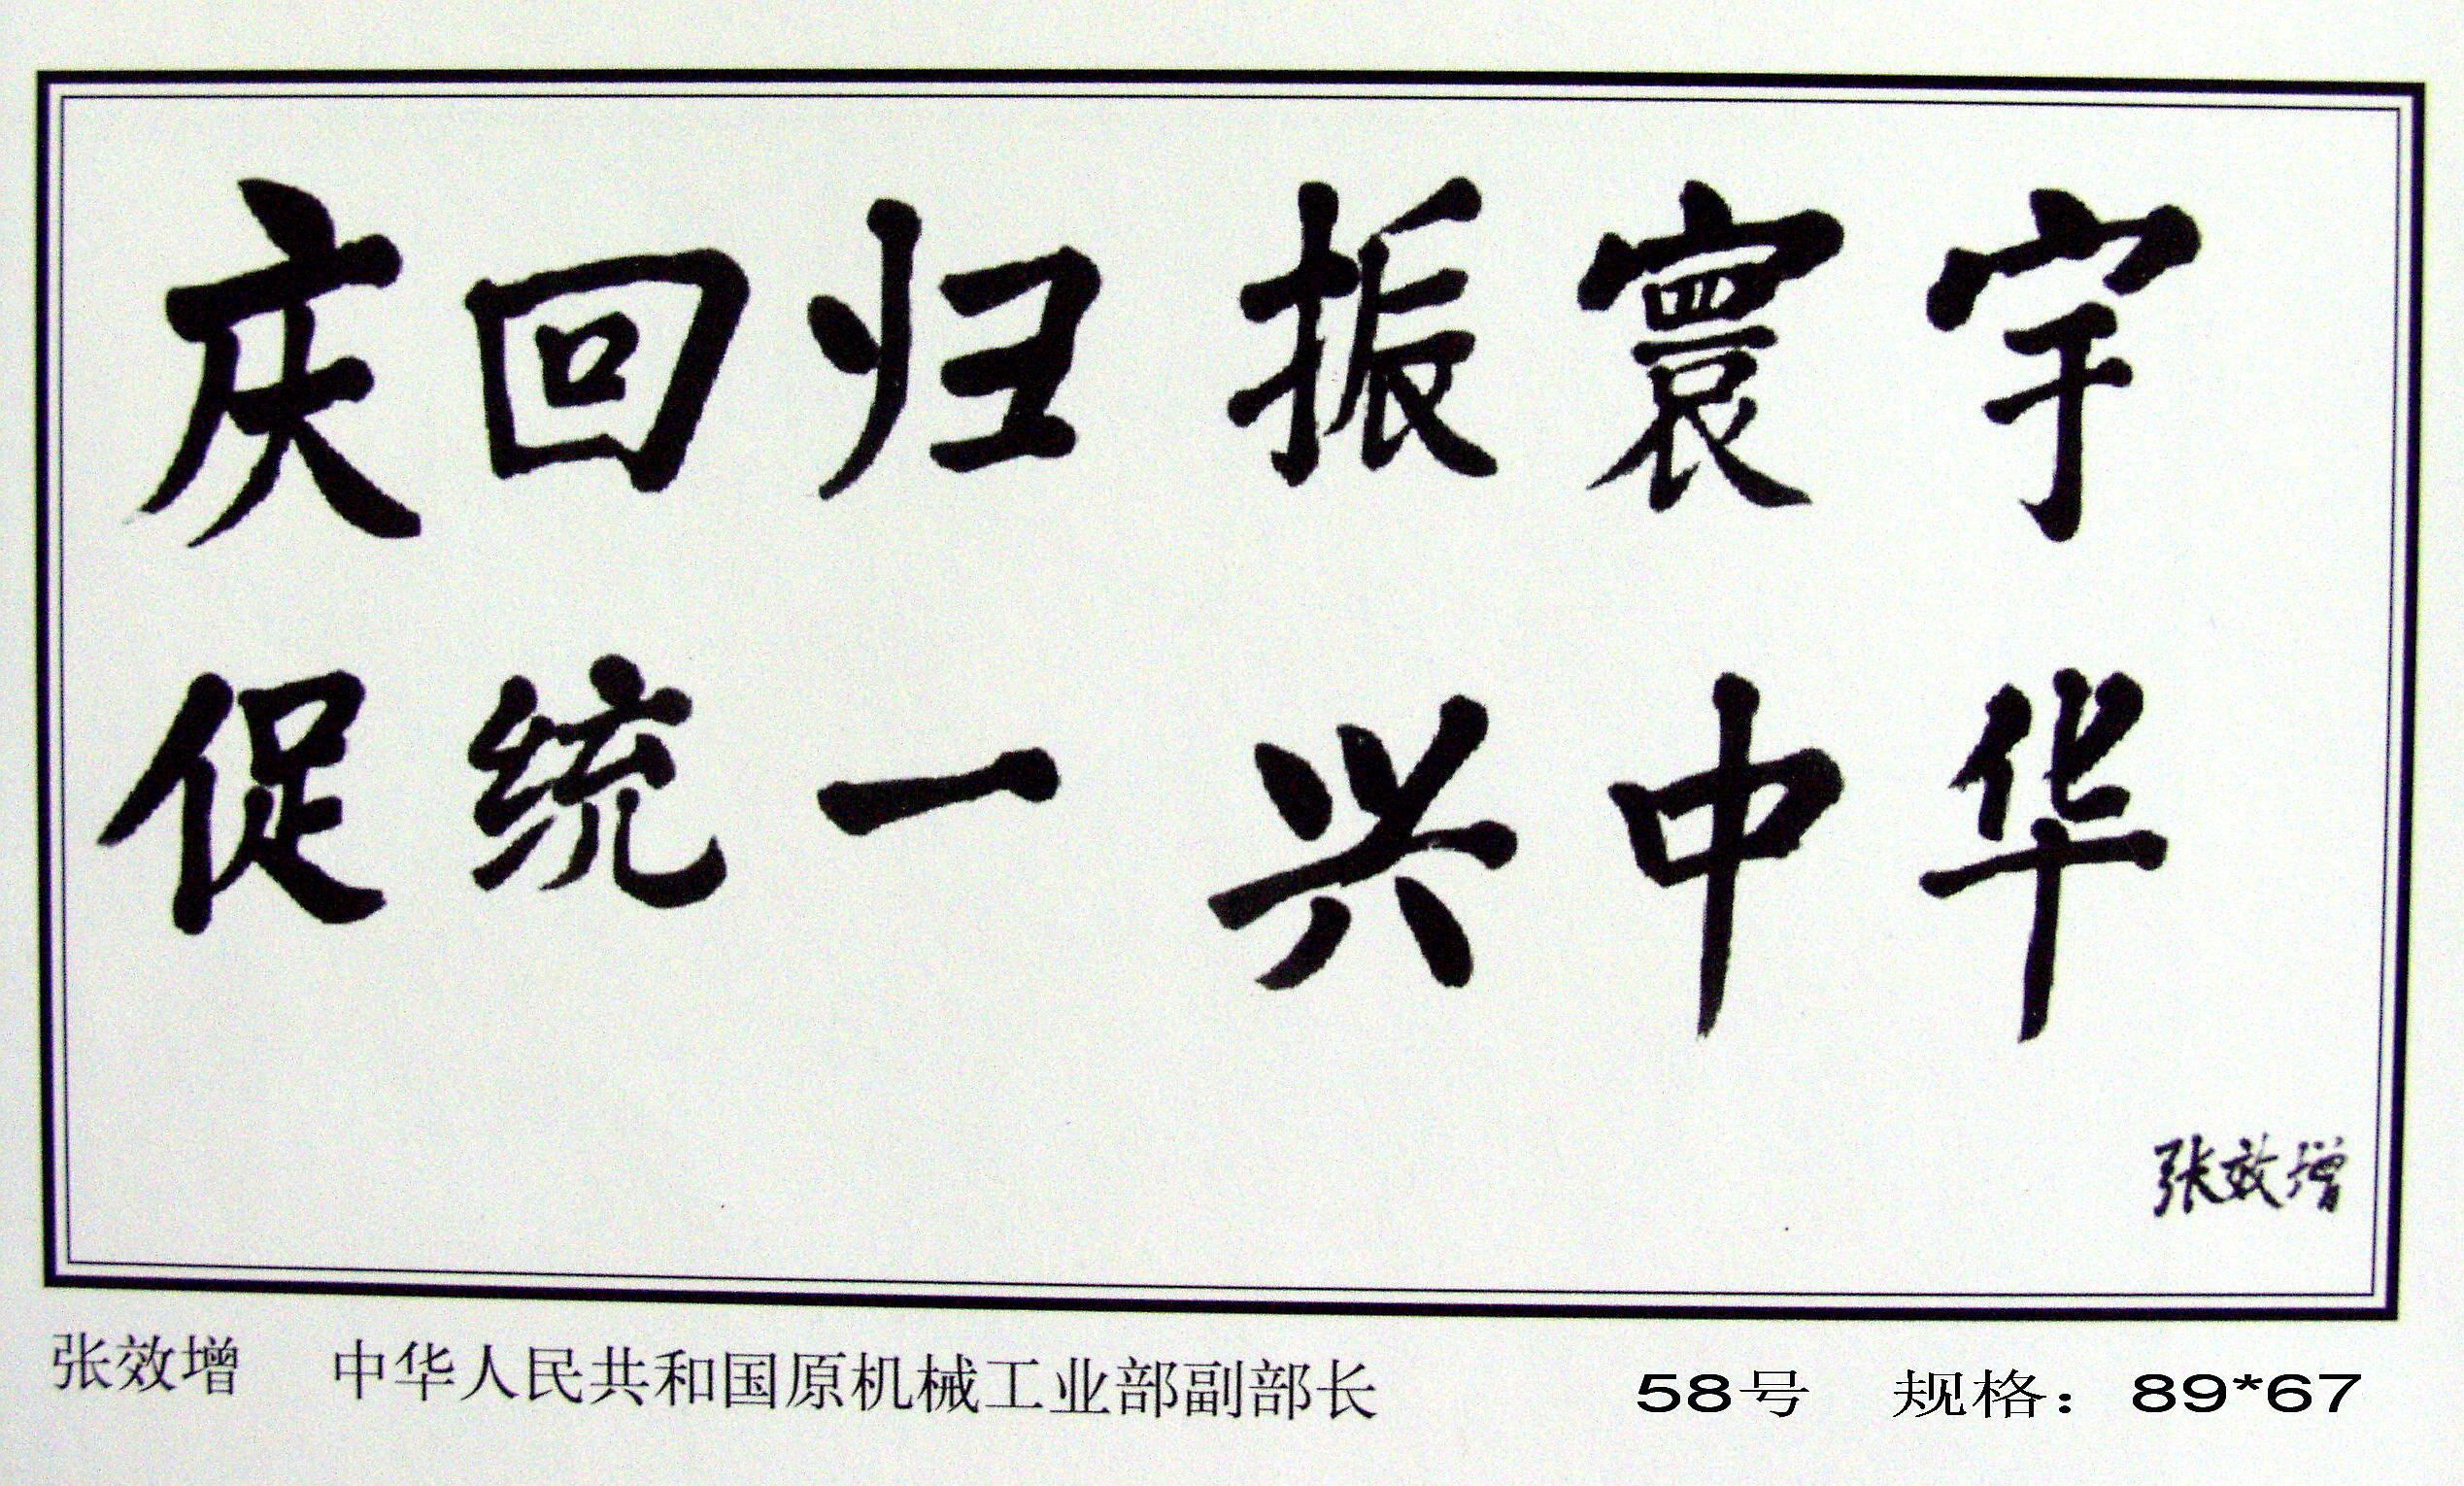 庆回归 振寰宇
促统一 兴中华
张效增
张效增 中华人民共和国原机械工业部副部长 58号 规格：89*67